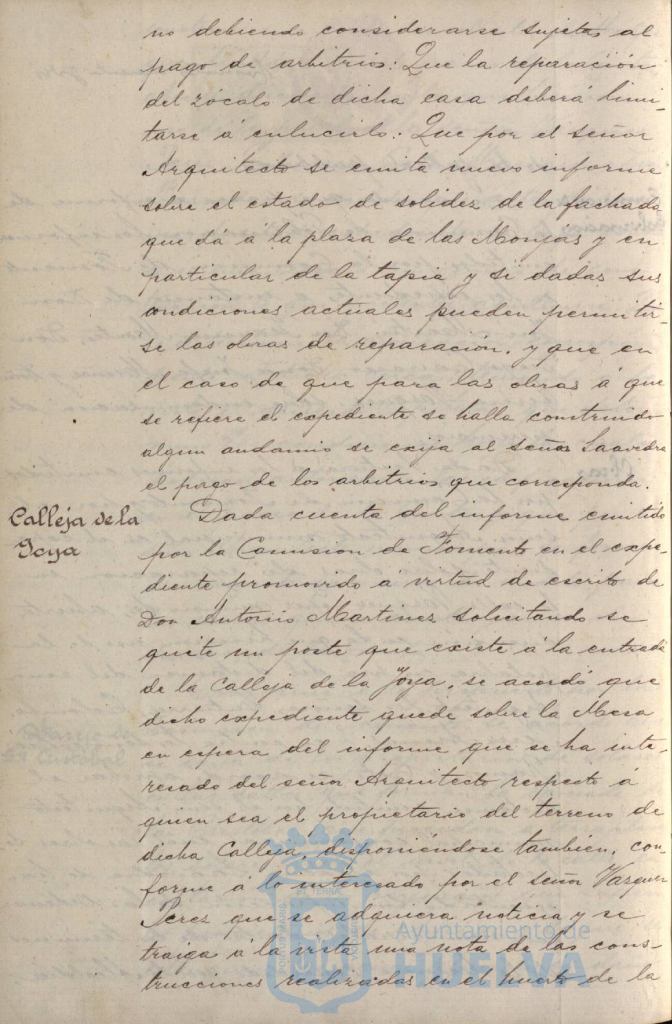 no debiendo considerarse sujetas al
pago de arbitrios: Que la reparación
del zócalo de dicha casa deberá limi-
tarse á enlucirlo: Que por el señor
Arquitecto se emita nuevo informe
sobre el estado de solidez de la fachada
que dá á la plaza de las Monjas y en
particular de la tapia y si dadas sus
condiciones actuales pueden permitir
se las obras de reparación, y que en
el caso de que para las obras á que
se refiere el expediente se halla construido
algun andamio se exija al señor Saavedra
el pago de los arbitrios que corresponda.
Calleja de la
Joya
Dada cuenta del informe emitido
por la Comision de Fomento en el expe-
diente promovido á virtud de escrito de
Don Antonio Martinez solicitando se
quite un poste que existe á la entrada
de la Calleja de la Joya, se acordó que
dicho expediente quede sobre la Mesa
en espera del informe que se ha inte-
resado del señor Arquitecto respecto á
quien sea el propietario del terreno de
dicha Calleja, disponiéndose también, con
forme á lo interesado por el señor Vazquez
Perez que se adquiera noticia y se
traiga á la vista una nota de las cons-
trucciones realizadas en el huerto de la
Ayuntamiento de
HUELVA